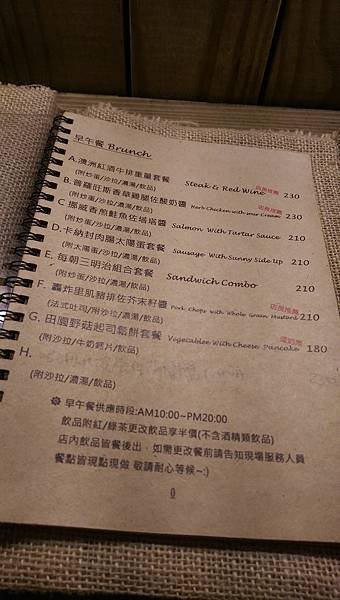 早午餐 Brunch
A.澳洲紅酒牛排重量套餐 Steak & Red Wine 店長推薦 230
(附炒蛋/沙拉/濃湯/飲品)
B.普羅旺斯香草雞腿佐酸奶醬 Herb Chicken with sour Cream 店長推薦 230
(附炒蛋/沙拉/濃湯/飲品)
C 挪威香煎鮭魚佐塔塔醬 Salmon With Tartar Sauce 210
(附炒蛋/沙拉/濃湯/飲品)
D.卡納封肉腸太陽蛋套餐 Sausage With Sunny Side Up 210
(附太陽蛋/沙拉/濃湯/飲品)
E. 每朝三明治組合套餐 Sandwich Combo 210
(附炒蛋/沙拉/濃湯/飲品)
F. 轟炸里肌豬排佐芥末籽醬 Pork Chops with Whole Grain Mustard 店長推薦 210
(法式吐司/附沙拉/濃湯/飲品)
G. 田園野菇起司鬆餅套餐 Vegetables With Cheese Pancake 蛋奶素 180
(附沙拉/牛奶麥片/飲品)
H.
(附沙拉/濃湯/飲品)
早午餐供應時段:AM10:00~PM20:00
飲品附紅/綠茶更改飲品享半價(不含酒精類飲品)
店內飲品皆餐後出，如需更改餐前請告知現場服務人員
餐點皆現點現做 敬請耐心等候~:)